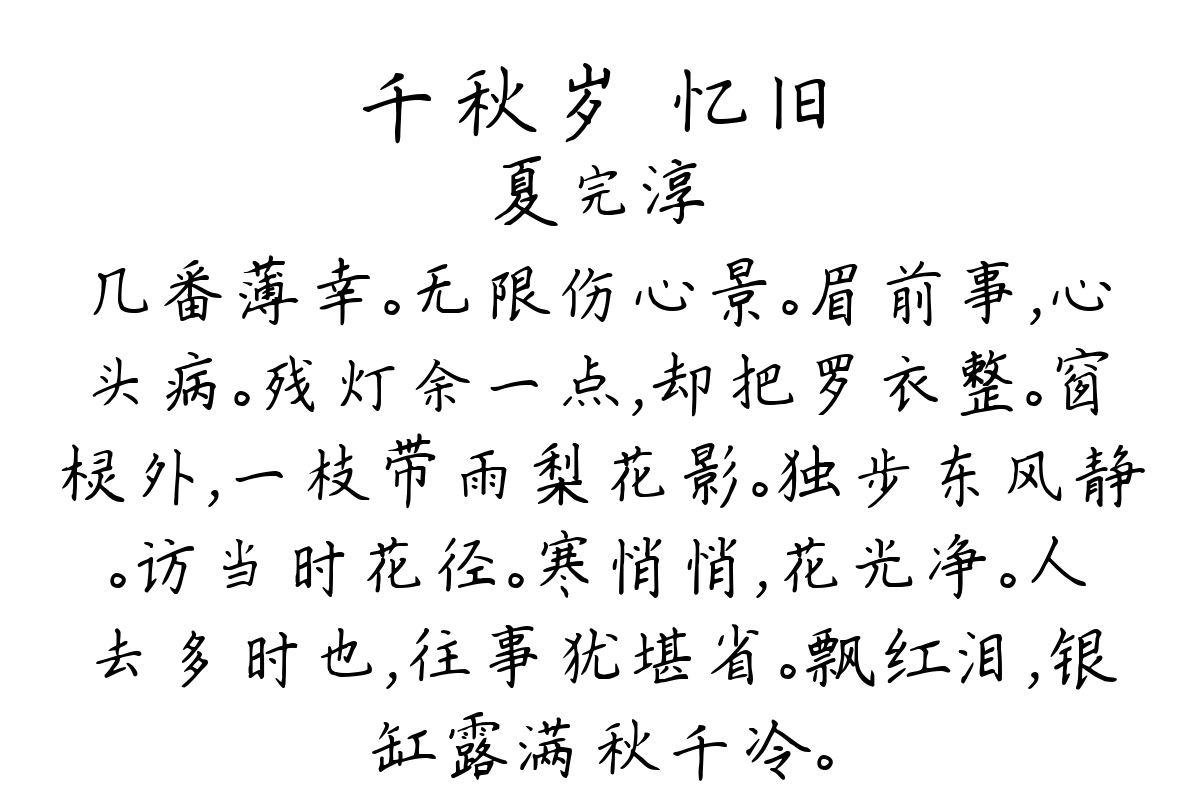 千秋岁 忆旧
夏完淳
几番薄幸。无限伤心景。眉前事,心
头病。残灯余一点,却把罗衣整。窗
棂外,一枝带雨梨花影。独步东风静
。访当时花径。寒悄悄,花光净。人
去多时也,往事犹堪省。飘红泪,银
缸露满秋千冷。